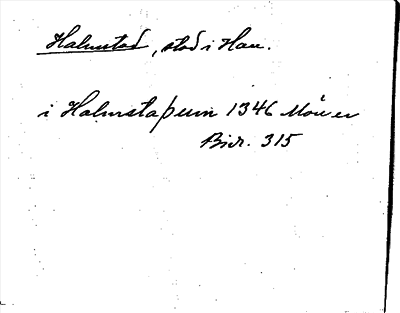 Halmstad, stad i Hall.
i Halmstaþum 1346 Möller
Bidr. 315